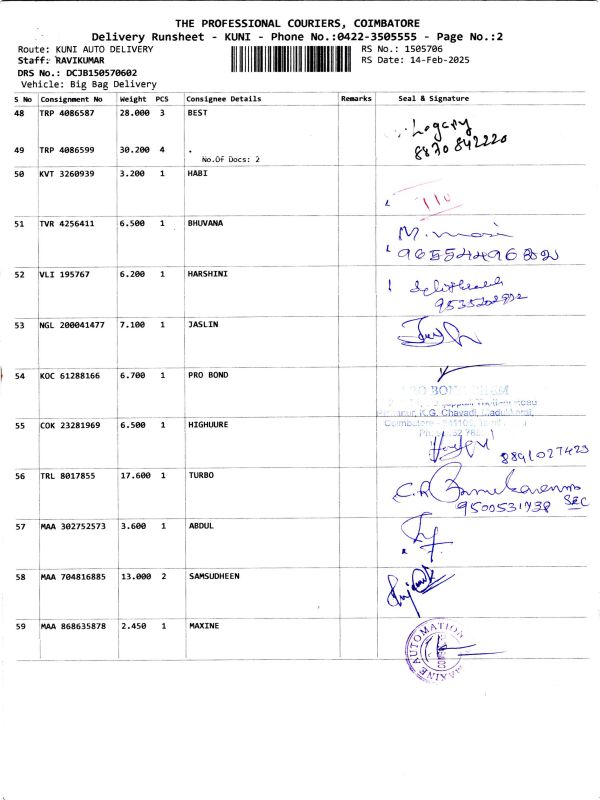 THE PROFESSIONAL COURIERS, COIMBATORE
Delivery Runsheet - KUNI - Phone No.:0422-3505555 - Page No.:2
Route: KUNI AUTO DELIVERY RS No.: 1505706
Staff: RAVIKUMAR RS Date: 14-Feb-2025
DRS No.: DCJB150570602
Vehicle: Big Bag Delivery
S No Consignment No Weight PCS Consignee Details Remarks Seal & Signature
48 TRP 4086587 28.000 3 BEST
8870 842220
49 TRP 4086599 30.200 4 .
No.Of Docs: 2
50 KVT 3260939 3.200 1 HABI
51 TVR 4256411 6.500 1 BHUVANA
52 VLI 195767 6.200 1 HARSHINI
53 NGL 200041477 7.100 1 JASLIN
54 KOC 61288166 6.700 1 PRO BOND
K.G. Chavadi,
55 COK 23281969 6.500 1 HIGHUURE
8891027423
56 TRL 8017855 17.600 1 TURBO
9500531738 SEC
57 MAA 302752573 3.600 1 ABDUL
58 MAA 704816885 13.000 2 SAMSUDHEEN
59 MAA 868635878 2.450 1 MAXINE
MAXINE AUTOMATION